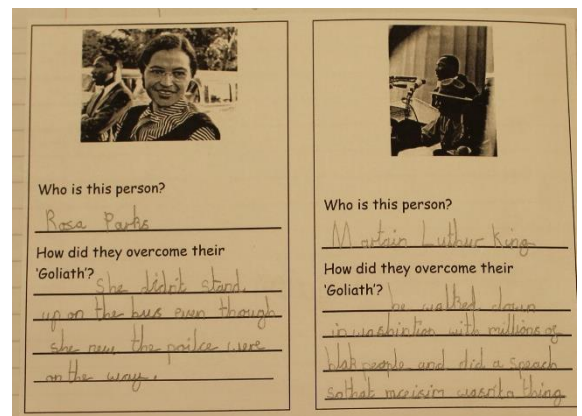 Who is this person?
Rosa Parks
How did they overcome their
'Goliath'?
She didn't stand
up on the bus even though
she new the poilce were
on the way.
Who is this person?
Martain Luthur King
How did they overcome their
'Goliath'?
he walked down
in washintion with millions of
blak people and did a speach
sothat rnceisim wasn't a thing